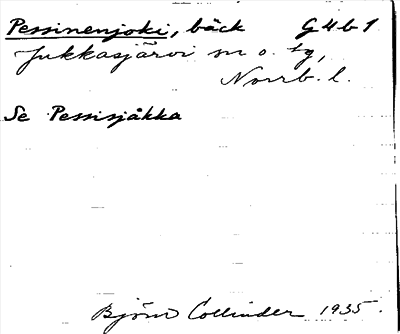 Pessinenjoki, bäck G4b1
Jukkasjärvi sn o. tg,
Norrb. l.
Se Pessisjåkka
Björn Collinder 1935.